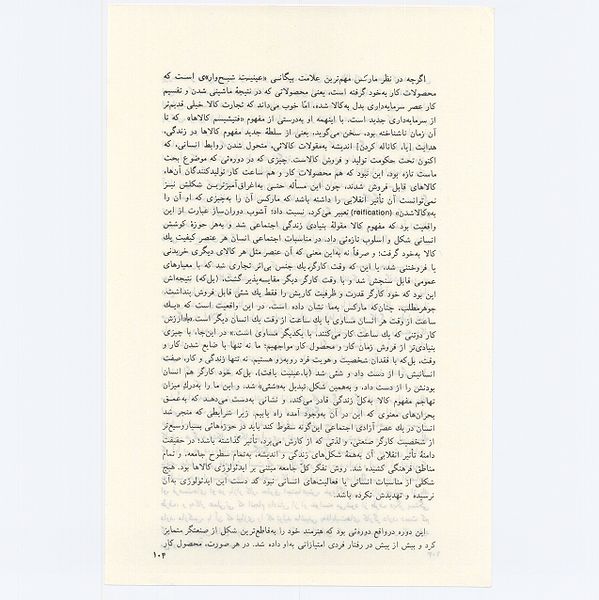 اگرچه در نظر مارکس مهم‌ترین علامت بیگانگی «عینیت شبح‌واره‌ی است که
محصولات کار به‌خود گرفته است، یعنی محصولاتی که در نتیجهٔ ماشینی شدن و تقسیم
کار عصر سرمایه‌داری بدل به‌کالا شده، امّا خوب می‌داند که تجارت کالا خیلی قدیم‌تر
از سرمایه‌داری جدید است. با اینهمه او به‌درستی از مفهوم «فتیشیسم کالاها» که تا
آن زمان ناشناخته بود، سخن می‌گوید، یعنی از سلطهٔ جدید مفهوم کالاها در زندگی،
هدایت [یا، کاناله کردن] اندیشه به‌مقولات کالائی، متحول شدن روابط انسانی، که
اکنون تحت حکومت تولید و فروش کالاست. چیزی که در دوره‌ئی که موضوع بحث
ماست تازه بود، این نبود که هم محصولات کار و هم ساعت کار تولیدکنندگان آن‌ها،
کالاهای قابل فروش شدند، چون این مسأله حتی به‌اغراق‌آمیزترین شکلش نیز
نمی‌توانست آن تأثیر انقلابی را داشته باشد که مارکس آن را به‌چیزی که او آن را
به‌«کالاشدن» (reification) تعبیر می‌کرد، نسبت داد؛ آشوب دوران‌ساز عبارت از این
واقعیت بود که مفهوم کالا مقولهٔ بنیادی زندگی اجتماعی شد و به‌هر حوزهٔ کوشش
انسانی شکل و اسلوب تازه‌ئی داد. در مناسبات اجتماعی انسان هر عنصر کیفیت یك
کالا به‌خود گرفت؛ و صرفاً نه به‌این معنی که آن عنصر مثل هر کالای دیگری خریدنی
یا فروختنی شد، یا این که وقت کارگر یك جنس بی‌اثر تجاری شد که با معیارهای
عمومی قابل سنجش شد و با وقت کارگر دیگر مقایسه‌پذیر گشت، (بل‌که) نتیجه‌اش
این بود که خود کارگر قدرت و ظرفیت کاریش را فقط یك شئی قابل فروش پنداشت.
جوهرمطلب، چنان‌که مارکس به‌ما نشان داده است، در این واقعیت است که «یـك
ساعت از وقت هر انسان مساوی با یك ساعت از وقت یك انسان دیگر است، ارزش
کار دوتنی که یك ساعت کار می‌کنند، با یکدیگر مساوی است.» در این‌جا، با چیزی
بنیادی‌تر از فروش زمان کار و محصول کار مواجهیم؛ ما نه تنها با ضایع شدن کار و
وقت، بل‌که با فقدان شخصیت و هویت فرد روبه‌رو هستیم. نه تنها زندگی و کار، صفت
انسانیش را از دست داد و شئی شد (یا، عینیت یافت)، بل‌که خود کارگر هم انسان
بودنش را از دست داد، و به‌همین شکل تبدیل به‌«شئی» شد، و این ما را به‌درك میزان
تهاجم مفهوم کالا به‌کلّ زندگی قادر می‌کند، و نشانی به‌دست می‌دهد که به‌عمق
بحران‌های معنوی که این در آن به‌وجود آمده راه یابیم. زیرا شرایطی که منجر شد
انسان در یك عصر آزادی اجتماعی این‌گونه سقوط کند باید در حوزه‌هائی بسیاروسیع‌تر
از شخصیت کارگر صنعتی، و لذتی که از کارش می‌برد، تأثیر گذاشته باشد؛ در حقیقت
دامنهٔ تأثیر انقلابی آن به‌همهٔ شکل‌های زندگی و اندیشه، به‌تمام سطوح جامعه، و تمام
مناطق فرهنگی کشیده شد. روش تفکر کلّ جامعه مبتنی بر ایدئولوژی کالاها بود. هیچ
شکلی از مناسبات انسانی یا فعالیت‌های انسانی نبود کد دست این ایدئولوژی به‌آن
نرسیده و تهدیدش نکرده باشد.
این دوره درواقع دوره‌ئی بود که هنرمند خود را به‌قاطع‌ترین شکل از صنعتگر متمایز
کرد و بیش از بیش در رفتار فردی امتیازاتی به‌او داده شد. در هر صورت، محصول کار
۱۰۴